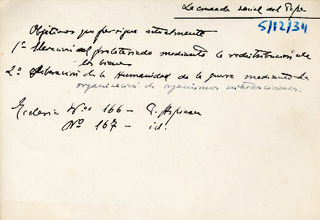 La cruzada social del Papa
5/12/34
Objetivos que persigue actualmente
1º Liberación del proletariado mediante la redistribución de
los bienes
2º Liberación de la Humanidad de la guerra mediante la
organización de organismos internacionales.
Ecclesia Nos 166 –
Nº 167 – id.